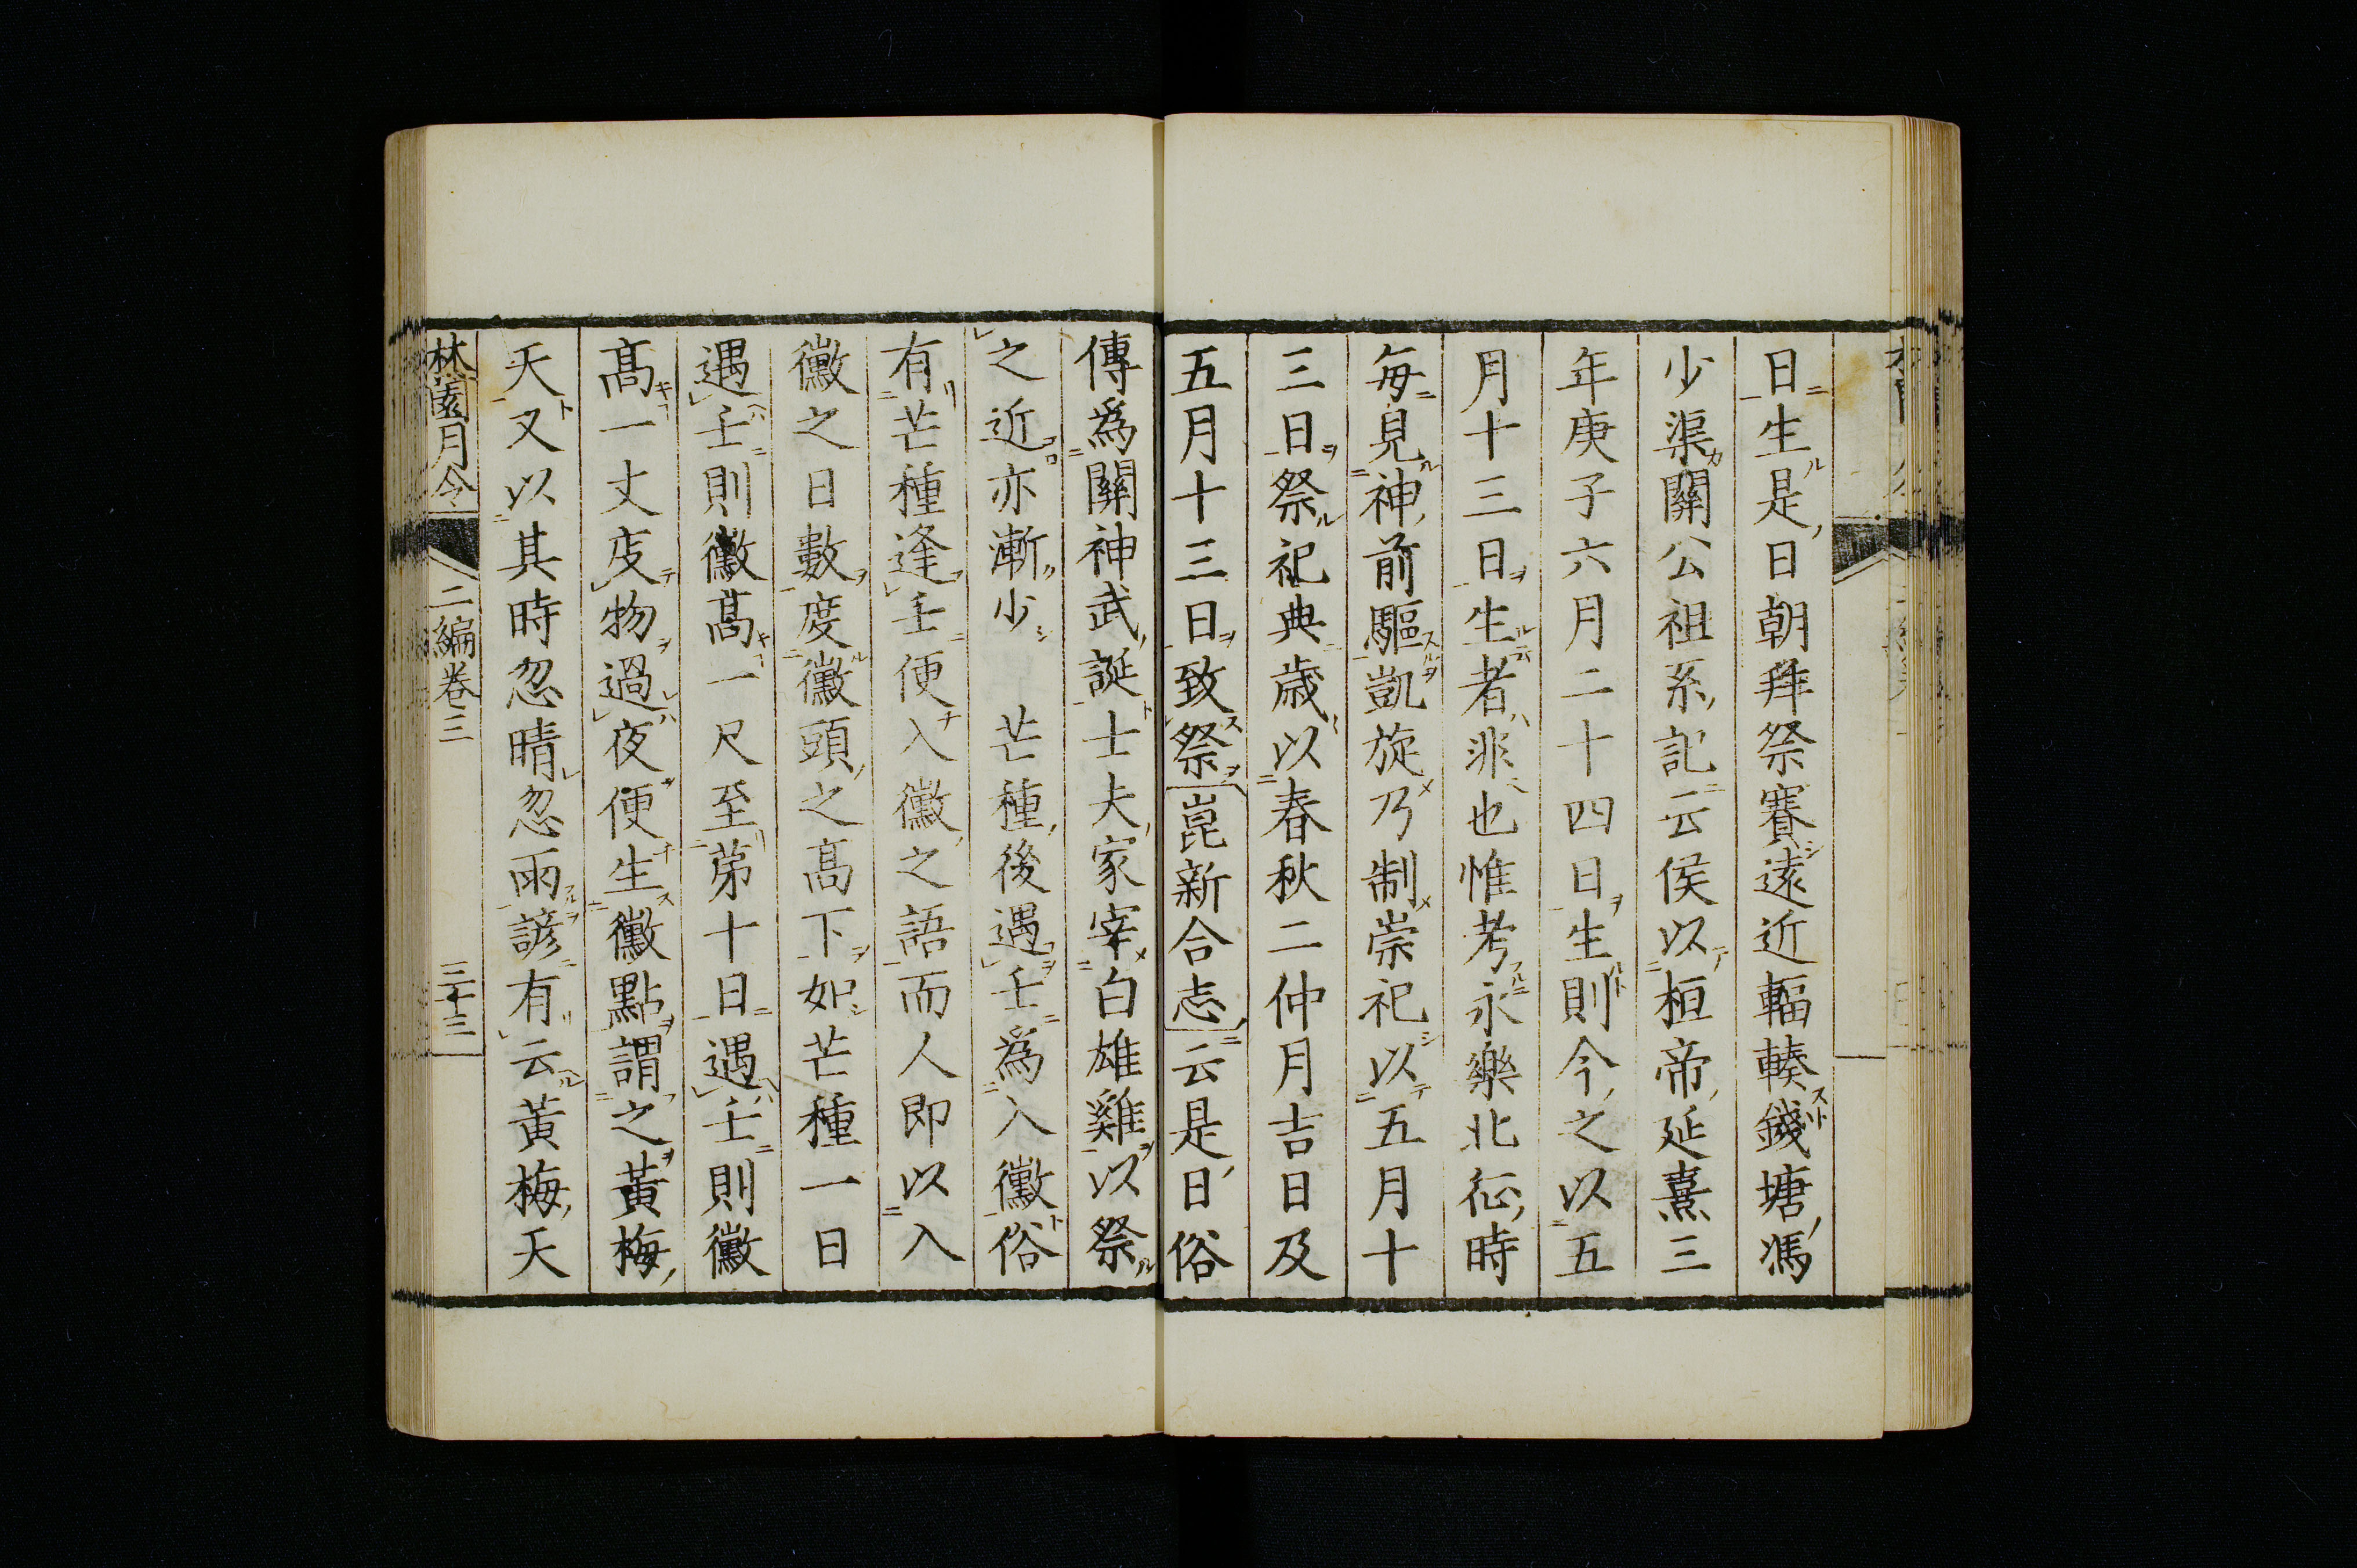 日生是日朝拜祭賽遠近輻輳錢塘馮
少渠關公祖系記云侯以桓帝延熹三
年庚子六月二十四日生則今之以五
月十三日生者非也惟考永樂北征時
毎見神前驅凱旋乃制崇祀以五月十
三日祭祀典歳以春秋二仲月吉日及
五月十三日致祭崑新合志云是日俗
傳爲關神武誕士夫家宰白雄雞以祭
之近亦漸少　芒種後遇壬爲入黴俗
有芒種逢壬便入黴之語而人即以入
黴之日數度黴頭之髙下如芒種一日
遇壬則黴髙一尺至苐十日遇壬則黴
髙一丈庋物過夜便生黴點謂之黃梅
天又以其時忽晴忽雨諺有云黃梅天
林園月令 二編卷三 三十三